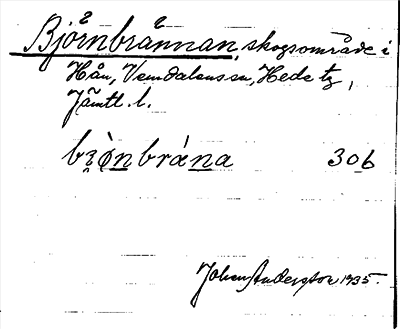 Björnbrännan, skogsområde i
Hån, Vemdalens sn, Hede tg,
Jämtl. l.
bi̯ò̱nbrána 30b
Johan Anderston 1935.